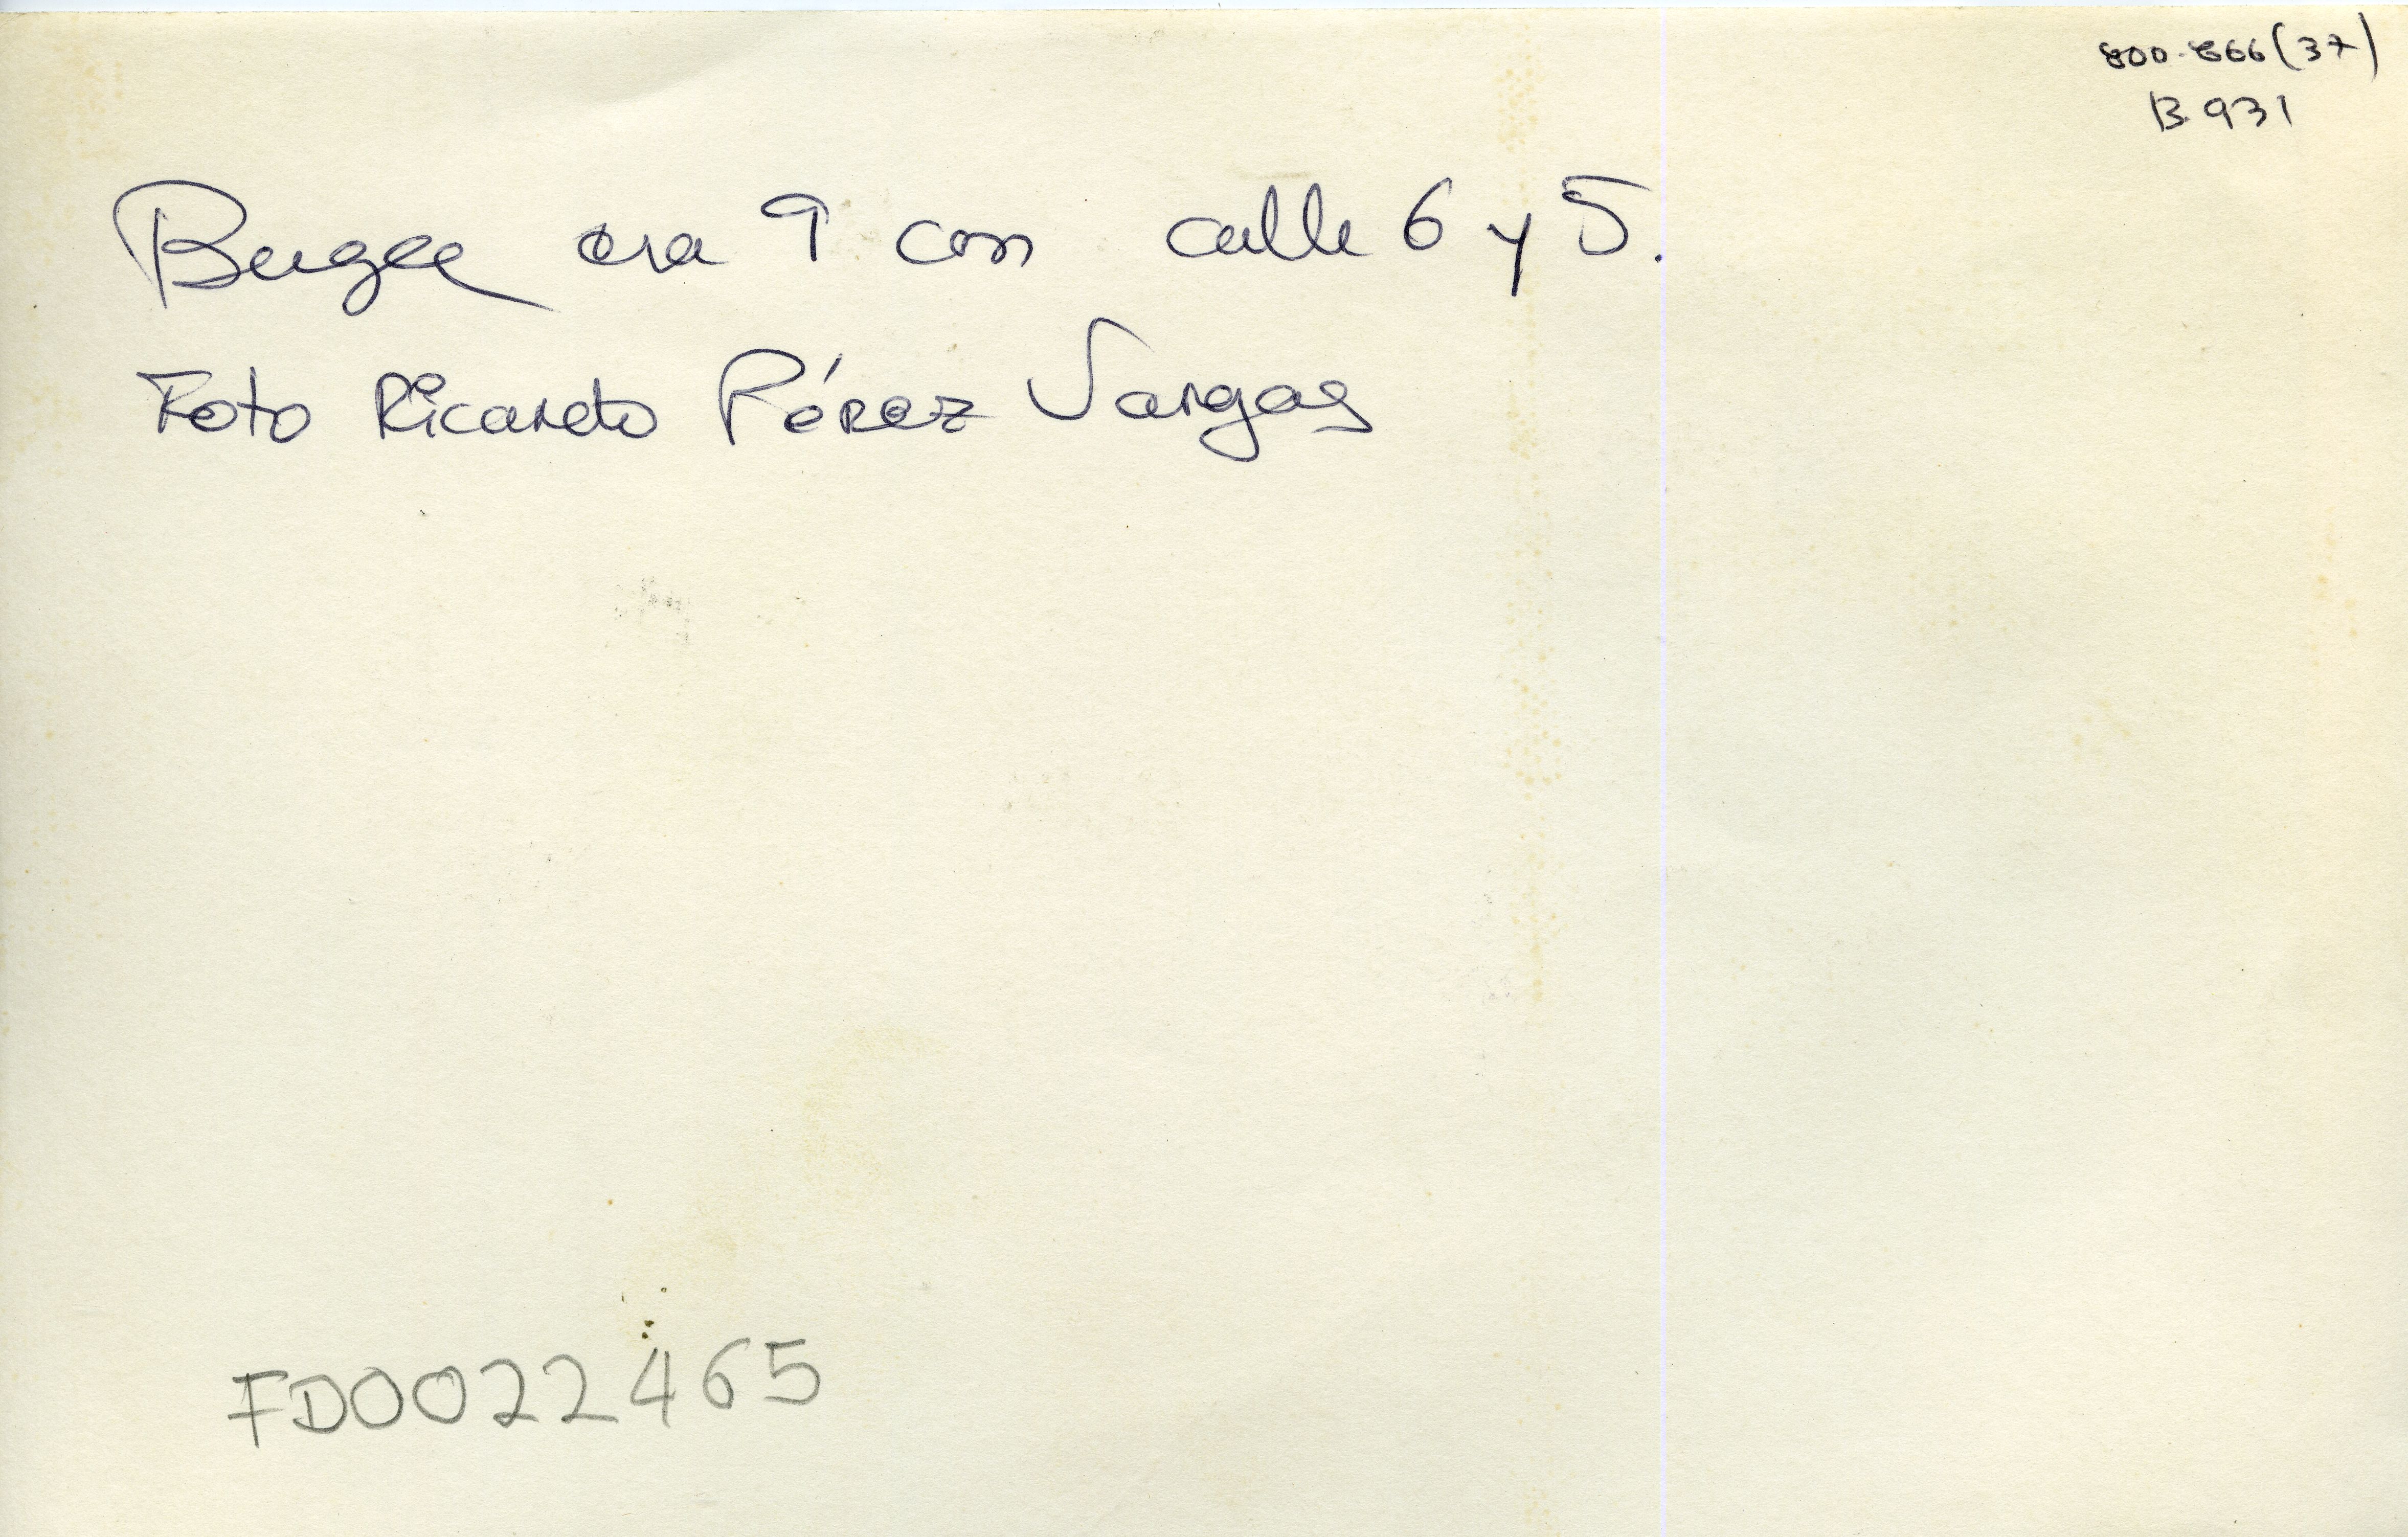 800-866(37)
B 931
Buga cra 9 con calle 6 y 5.
Foto Ricardo Pérez Vargas
FD0022465